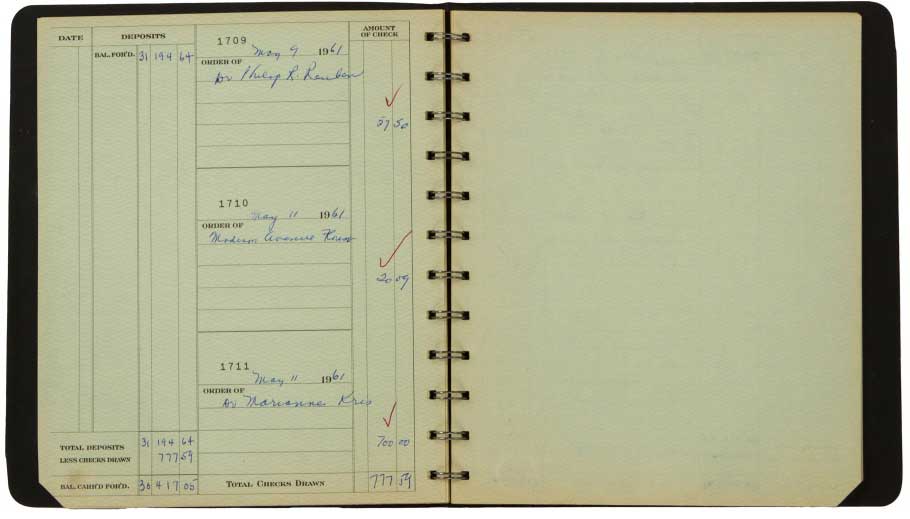 DATE DEPOSITS AMOUNT OF CHECK
BAL. FOR'D. 31 194 64
1709
May 9 1961
ORDER OF
Dr Philip R. Reuben
57 50
1710
May 11 1961
ORDER OF
Madison Avenue
20 09
1711
May 11 1961
ORDER OF
Dr Marianne Kris
700 00
TOTAL DEPOSITS 31 194 64
LESS CHECKS DRAWN 777 59
BAL. CARR'D FOR'D. 30 417 05
TOTAL CHECKS DRAWN 777 59